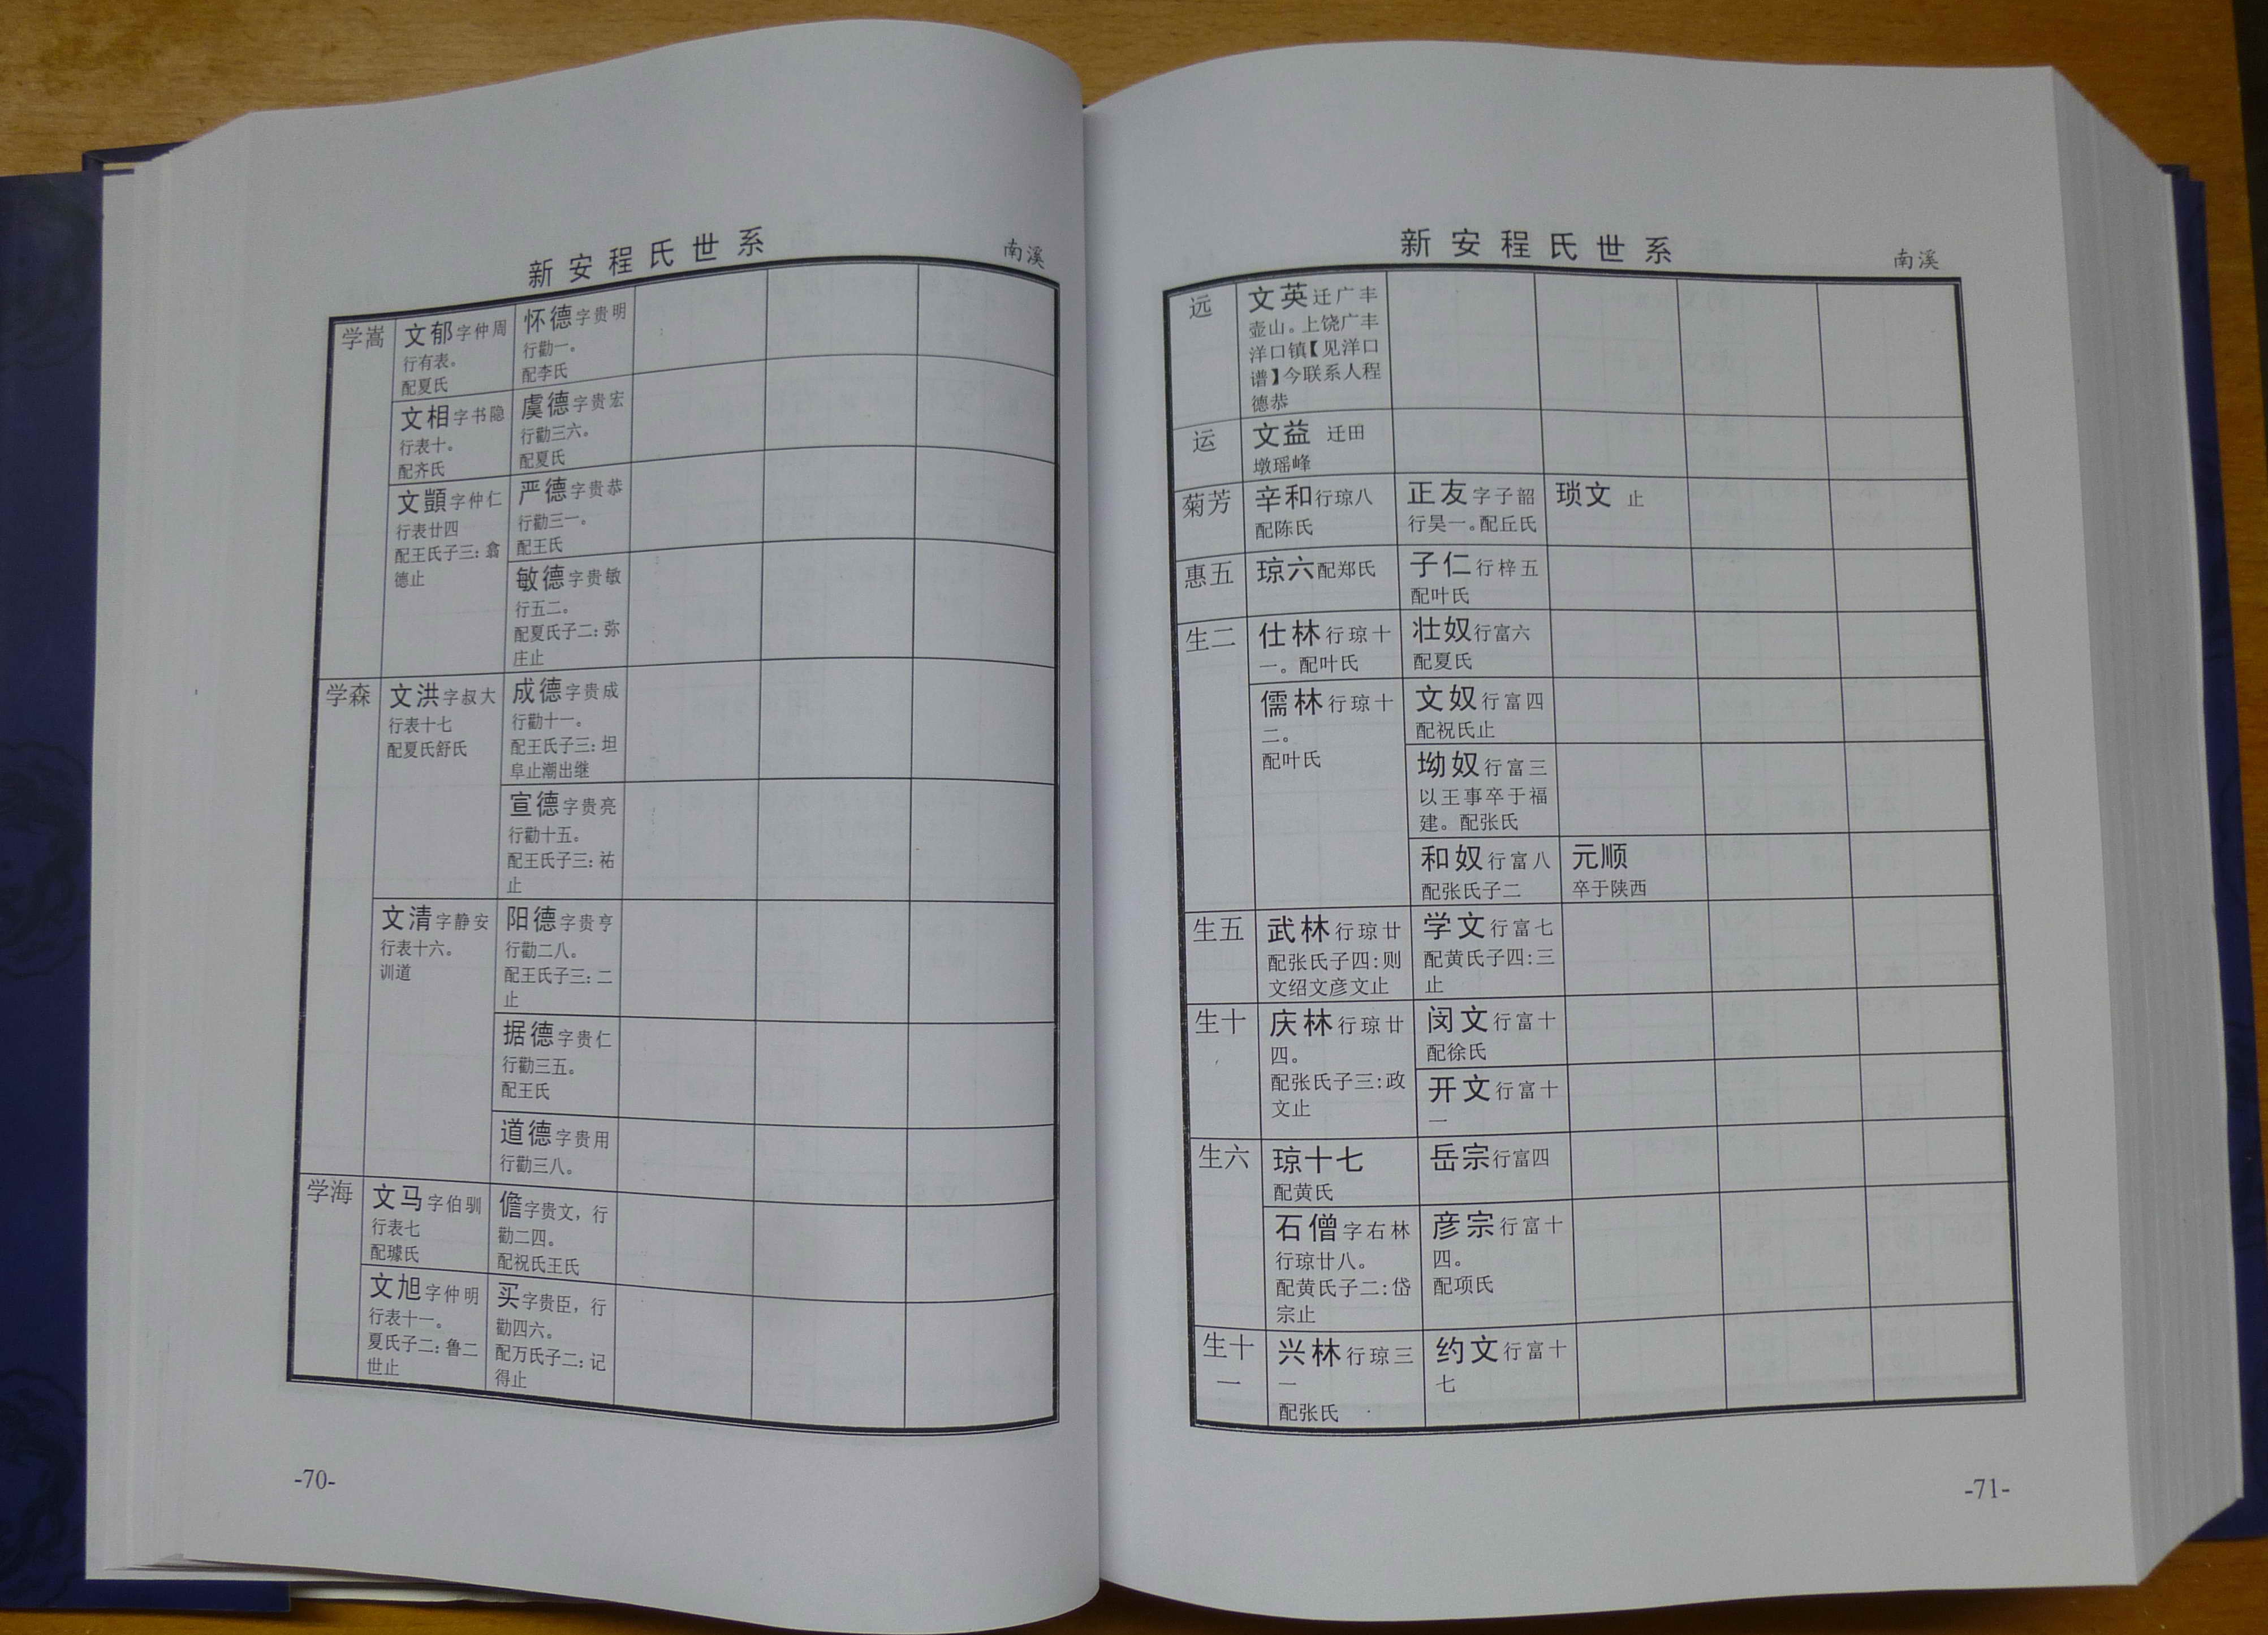 新安程氏世系
南溪
学嵩
文郁字仲周
行有表。
配夏氏
怀德字贵明
行勸一。
配李氏
文相字书隐
行表十。
配齐氏
虞德字贵宏
行勸三六。
配夏氏
文顗字仲仁
行表廿四
配王氏子三:翕
德止
严德字贵恭
行勸三一。
配王氏
敏德字贵敏
行五二。
配夏氏子二:弥
庄止
学森
文洪字叔大
行表十七
配夏氏舒氏
成德字贵成
行勸十一。
配王氏子三:坦
阜止潮出继
宣德字贵亮
行勸十五。
配王氏子三:祐
止
文清字静安
行表十六。
训道
阳德字贵亨
行勸二八。
配王氏子三:二
止
据德字贵仁
行勸三五。
配王氏
道德字贵用
行勸三八。
学海
文马字伯驯
行表七
配璩氏
儋字贵文,行
勸二四。
配祝氏王氏
文旭字仲明
行表十一。
夏氏子二:鲁二
世止
买字贵臣,行
勸四六。
配万氏子二:记
得止
-70-
新安程氏世系
南溪
远
文英迁广丰
壶山。上饶广丰
洋口镇【见洋口
谱】今联系人程
德恭
运
文益 迁田
墩瑶峰
菊芳
辛和行琼八
配陈氏
正友字子韶
行昊一。配丘氏
琐文 止
惠五
琼六配郑氏
子仁行梓五
配叶氏
生二
仕林行琼十
一。配叶氏
壮奴行富六
配夏氏
儒林行琼十
二。
配叶氏
文奴行富四
配祝氏止
坳奴行富三
以王事卒于福
建。配张氏
和奴行富八
配张氏子二
元顺
卒于陕西
生五
武林行琼廿
配张氏子四:则
文绍文彦文止
学文行富七
配黄氏子四:三
止
生十
庆林行琼廿
四。
配张氏子三:政
文止
闵文行富十
配徐氏
开文行富十
一
生六
琼十七
配黄氏
岳宗行富四
石僧字右林
行琼廿八。
配黄氏子二:岱
宗止
彦宗行富十
四。
配项氏
生十
一
兴林行琼三
一
配张氏
约文行富十
七
-71-